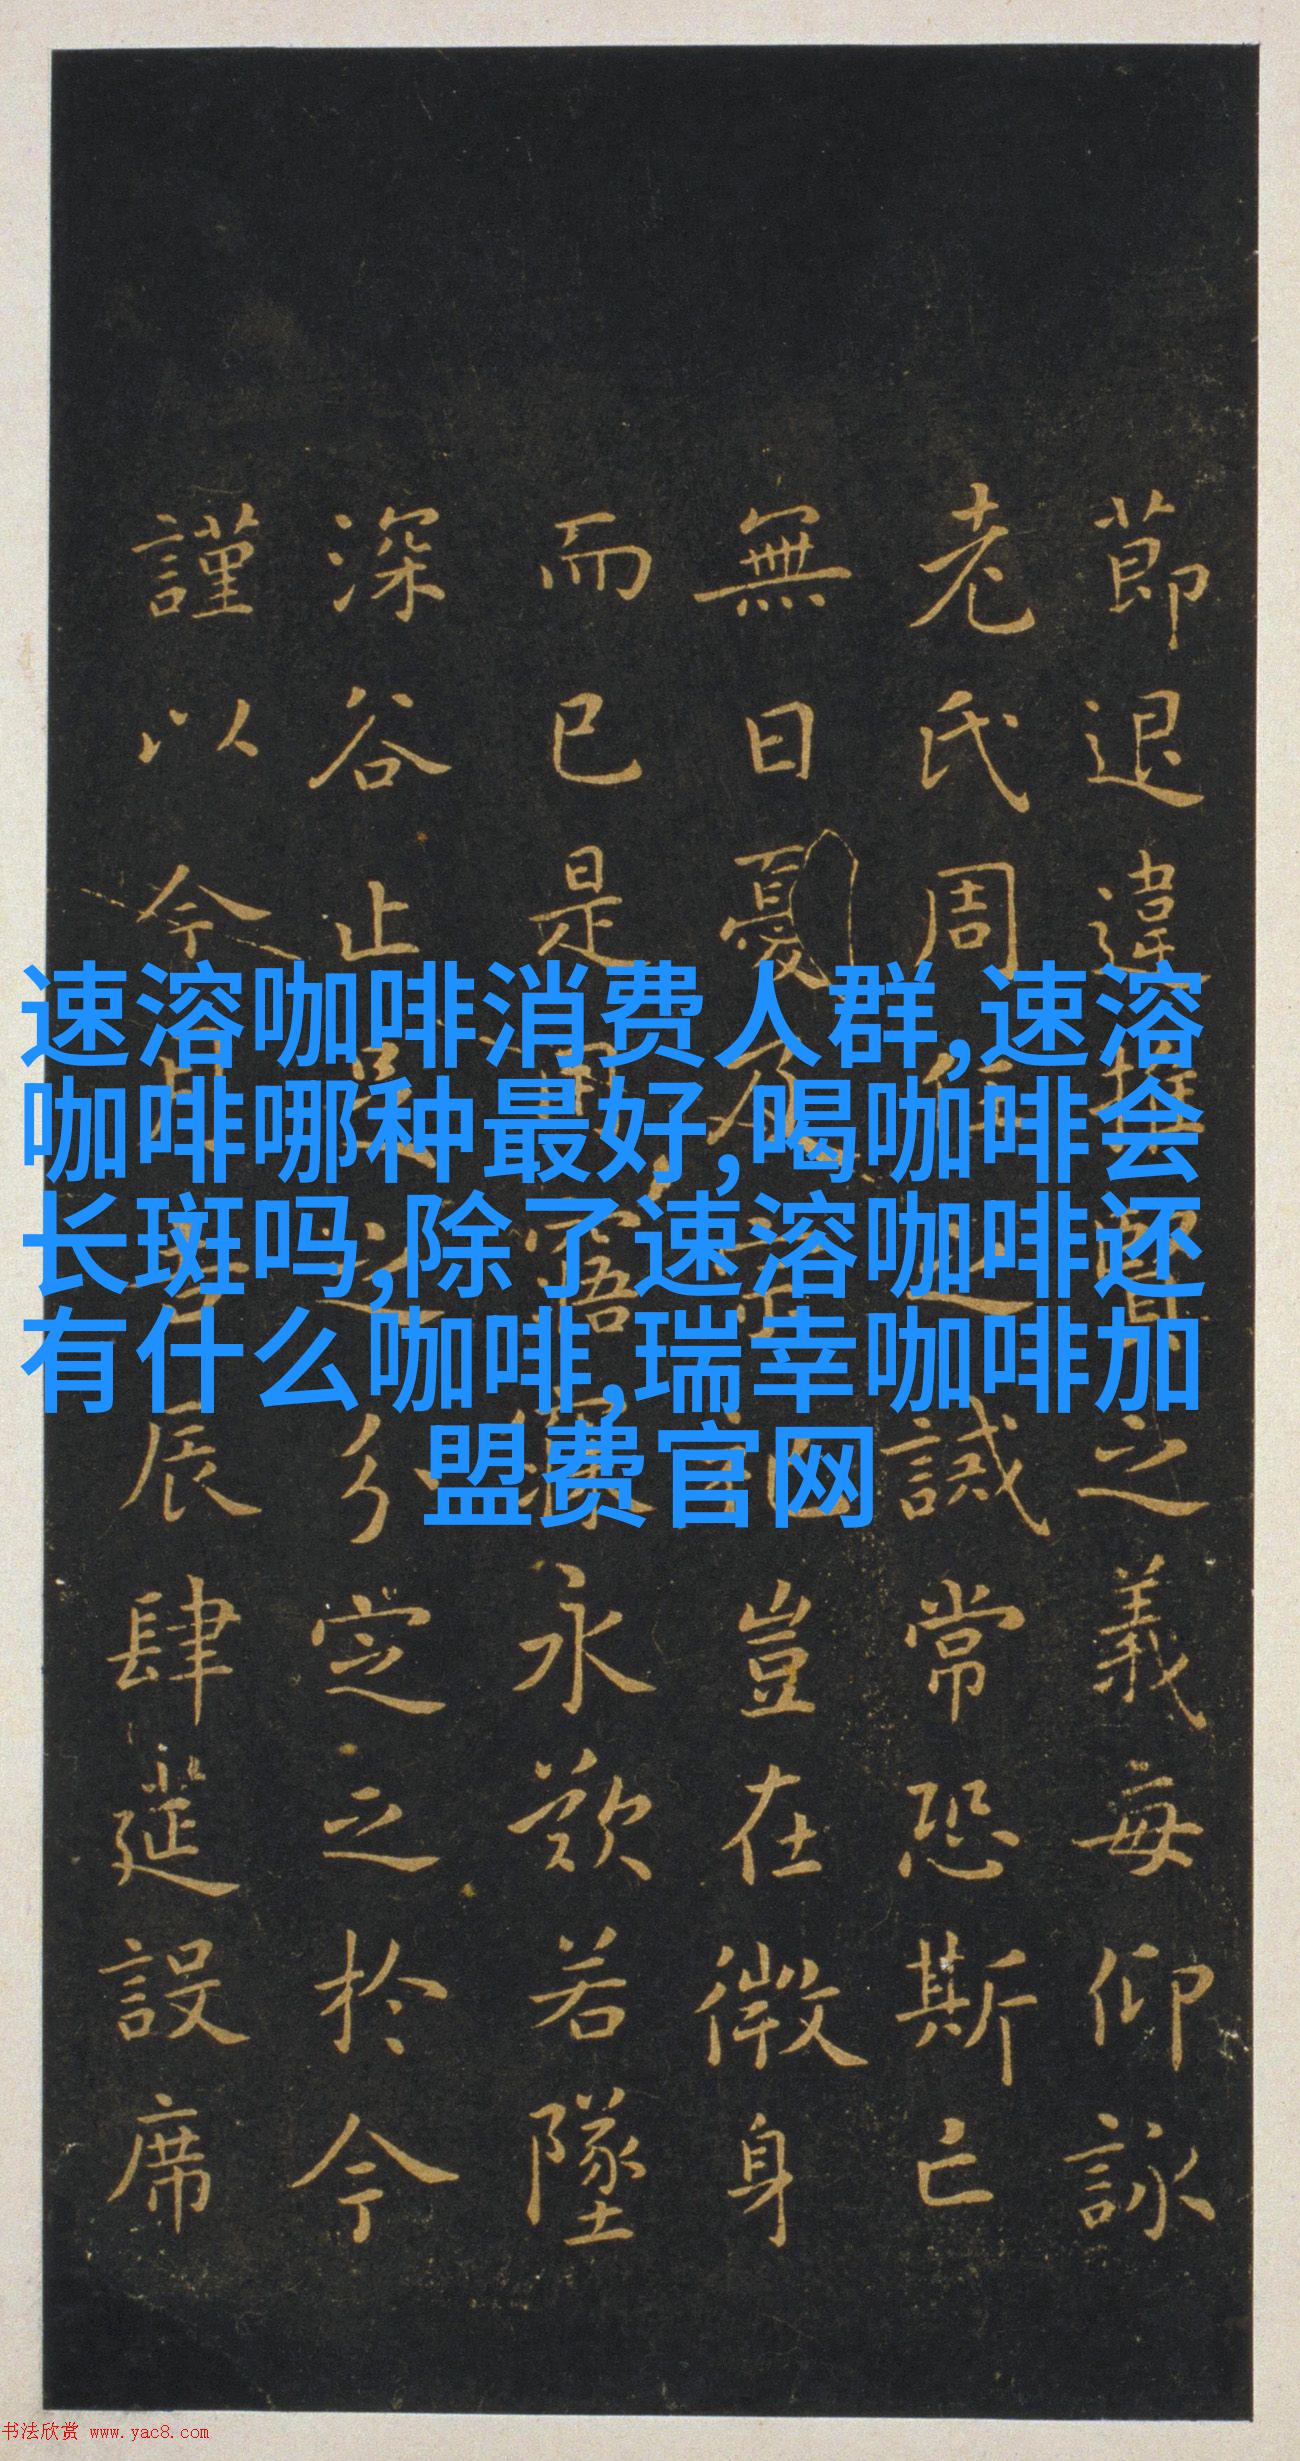 節退違推賢之義每仰詠
老氏周任之誡常恐斯亡
無日憂及宗祀豈在微身
而已是用寤寐永歎若墜
深谷止足之分定之於今
謹以今月吉辰肆筵設席
速溶咖啡消费人群,速溶
咖啡哪种最好,喝咖啡会
长斑吗,除了速溶咖啡还
有什么咖啡,瑞幸咖啡加
盟费官网
书法欣赏 www.yac8.com